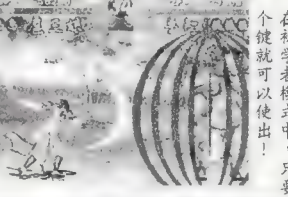 在初学者模式中，只要
个键就可以使出！